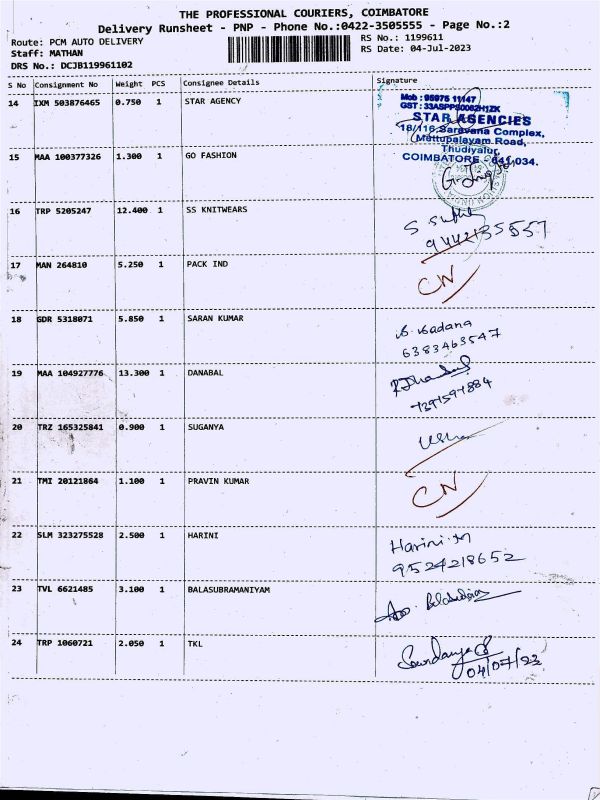 THE PROFESSIONAL COURIERS, COIMBATORE
Delivery Runsheet - PNP - Phone No.:0422-3505555 - Page No.:2
Route: PCM AUTO DELIVERY
Staff: MATHAN
DRS No.: DCJB119961102
RS No.: 1199611
RS Date: 04-Jul-2023
S No Consignment No Weight PCS Consignee Details Signature
14 IXM 503876465 0.750 1 STAR AGENCY
Mob : 95975 11147
STAR AGENCIES
18/116, Saravana Complex,
Mettupalayam Road,
Thudiyalur,
COIMBATORE - 641 034.
15 MAA 100377326 1.300 1 GO FASHION
16 TRP 5205247 12.400 1 SS KNITWEARS
9442135557
17 MAN 264810 5.250 1 PACK IND
CN
18 GDR 5318071 5.850 1 SARAN KUMAR
6383463547
19 MAA 104927776 13.300 1 DANABAL
7397597884
20 TRZ 165325841 0.900 1 SUGANYA
Usha
21 TMI 20121864 1.100 1 PRAVIN KUMAR
CN
22 SLM 323275528 2.500 1 HARINI
Harini.M
9524218652
23 TVL 6621485 3.100 1 BALASUBRAMANIYAM
24 TRP 1060721 2.050 1 TKL
04/07/23